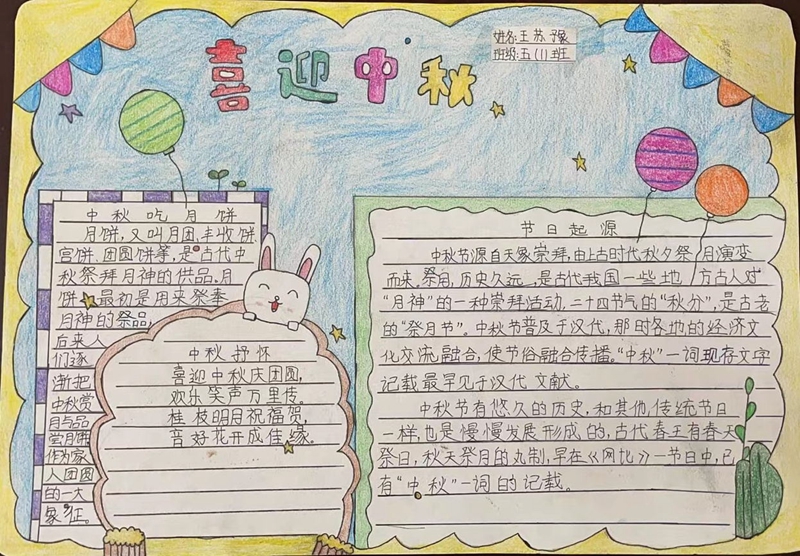 喜迎中秋
姓名:王苏豫
班级:五(1)班
中秋吃月饼
月饼,又叫月团、丰收饼、
宫饼、团圆饼等,是古代中
秋祭拜月神的供品。月
饼最初是用来祭奉
月神的祭品,
后来人
们逐
渐把
中秋赏
月与品
尝月饼
作为家
人团圆
的一大
象征。
中秋抒怀
喜迎中秋庆团圆,
欢乐笑声万里传。
桂枝明月祝福贺,
音好花开成佳缘。
节日起源
中秋节源自天象崇拜,由上古时代秋夕祭月演变
而来。祭月,历史久远,是古代我国一些地方古人对
“月神”的一种崇拜活动,二十四节气的“秋分”,是古老
的“祭月节”。中秋节普及于汉代,那时各地的经济文
化交流融合,使节俗融合传播。“中秋”一词现存文字
记载最早见于汉代文献。
中秋节有悠久的历史,和其他传统节日
一样,也是慢慢发展形成的,古代春王有春天
祭日,秋天祭月的丸制,早在《网比》一节日中,已
有“中秋”一词的记载。